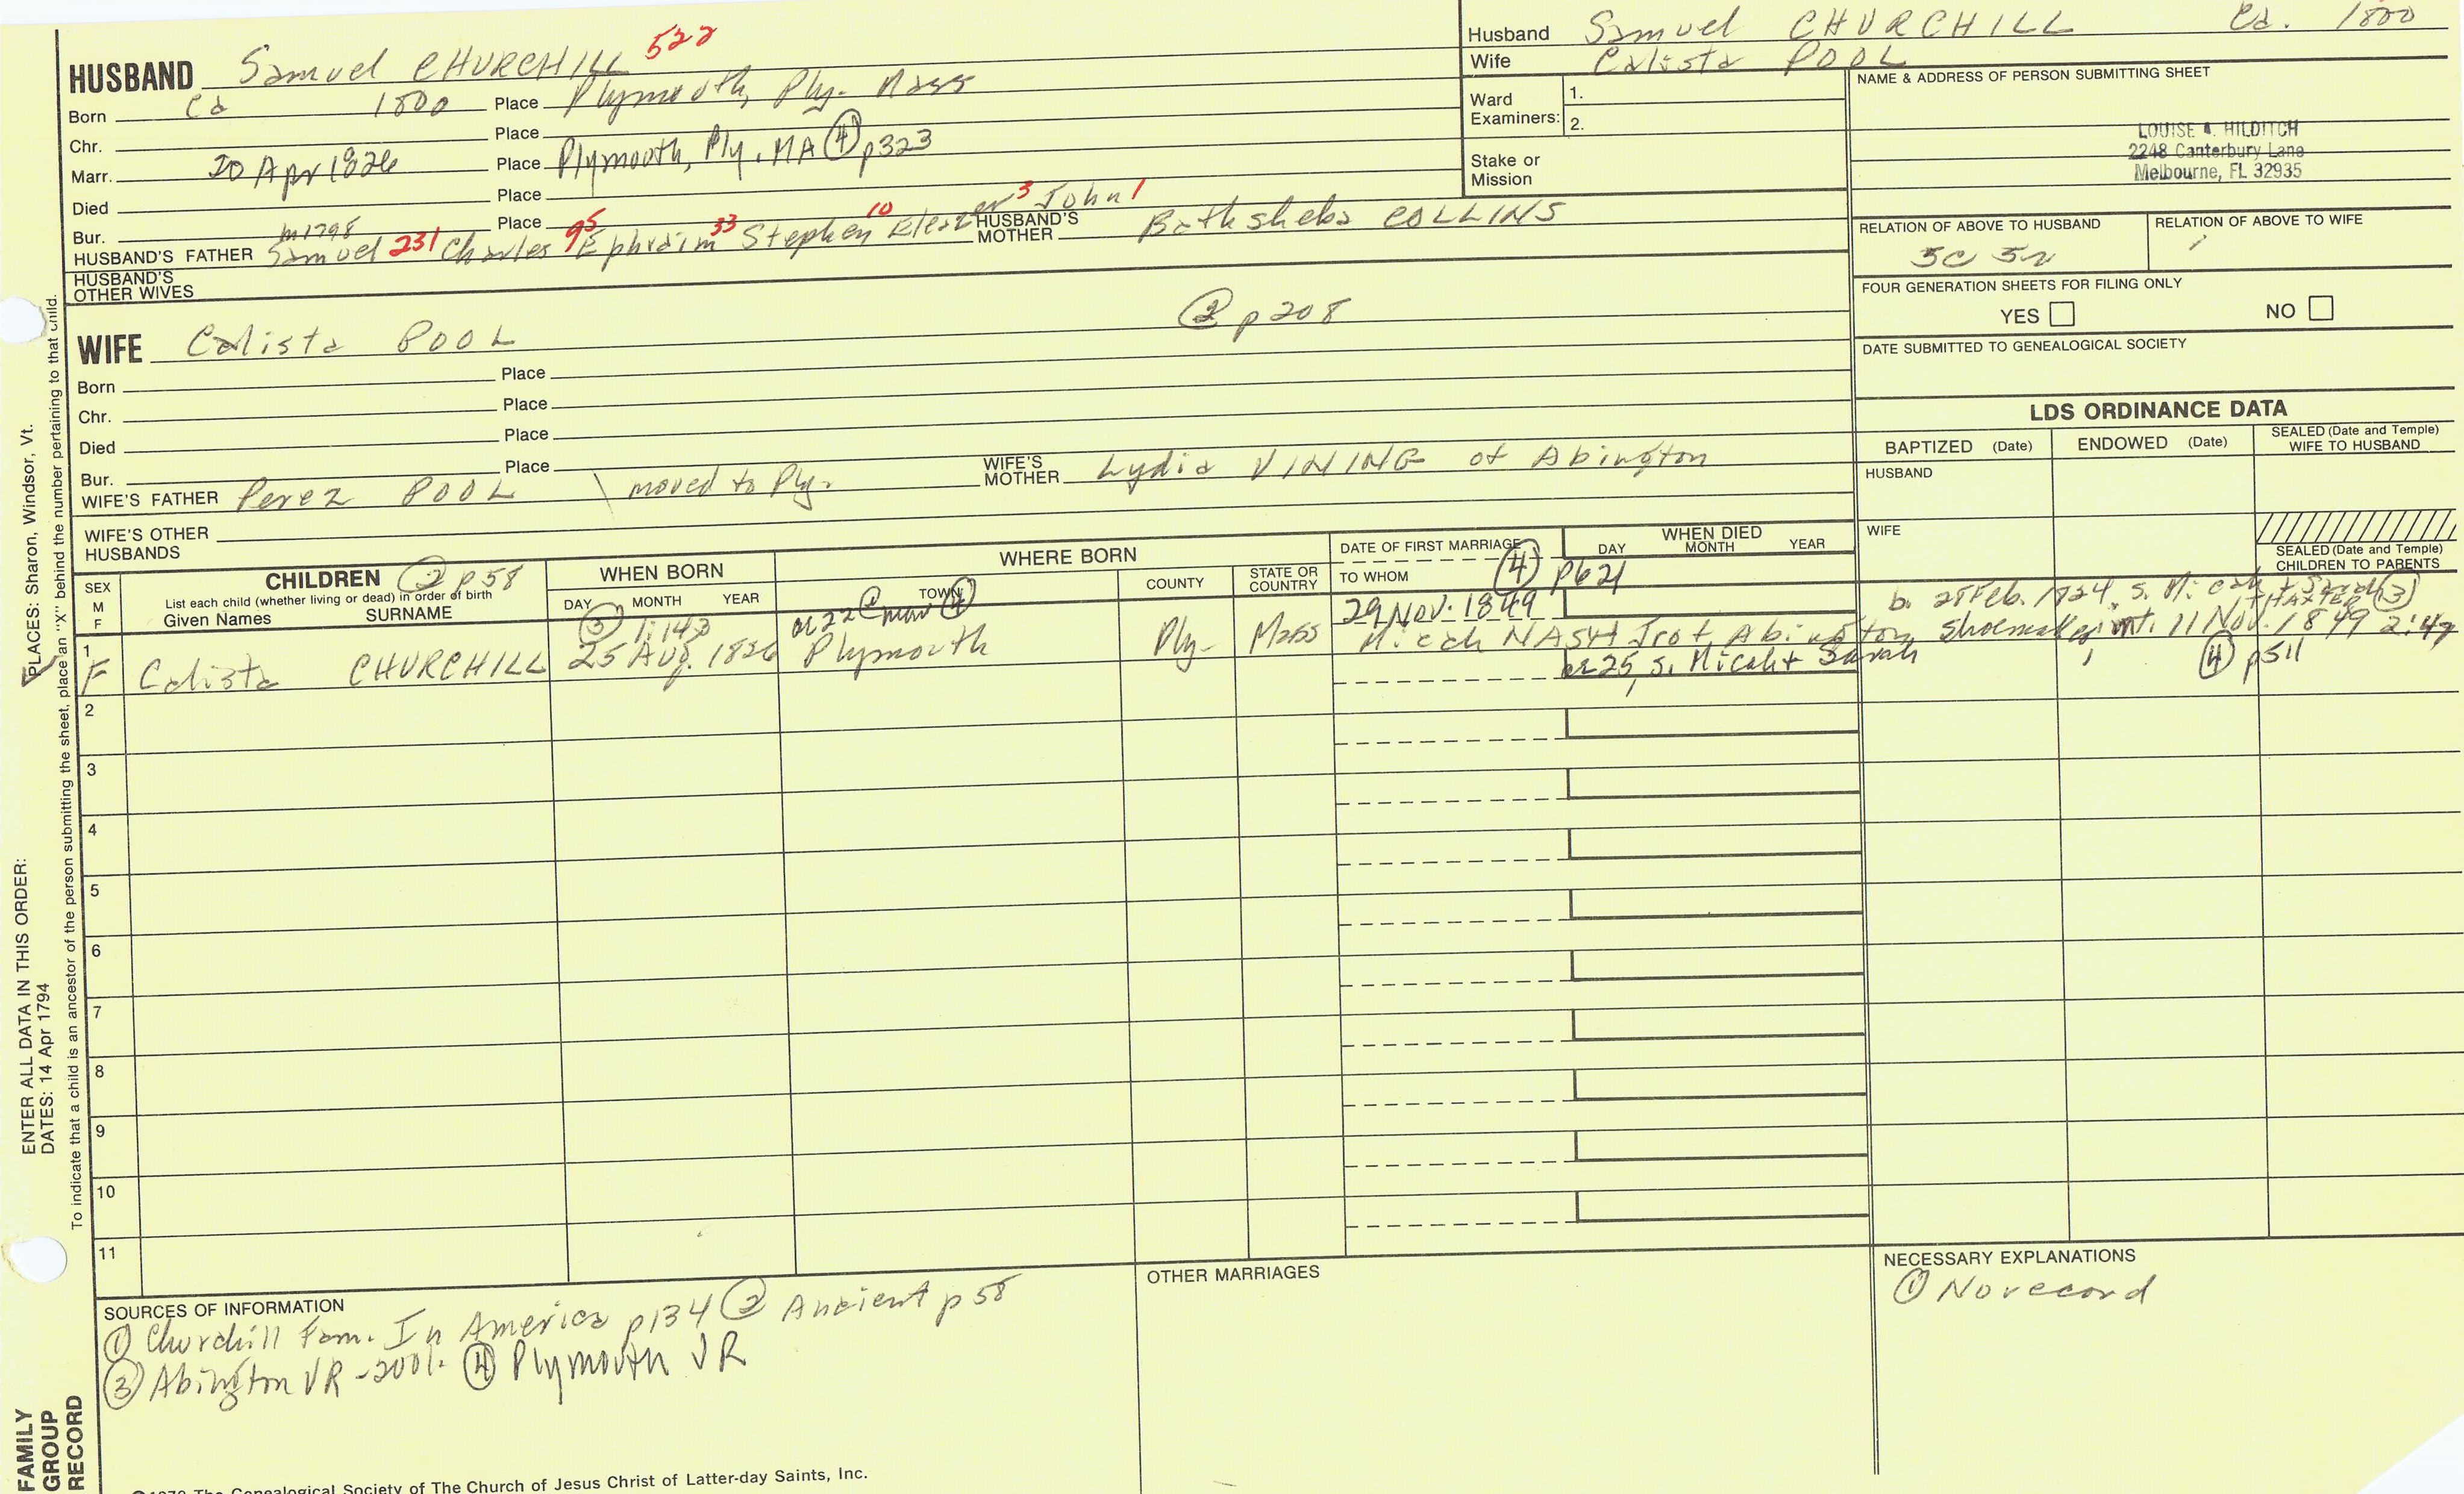 Husband Samuel CHURCHILL Ca. 1800
Wife Calista POOL
HUSBAND Samuel CHURCHILL 522
Born Ca 1800 Place Plymouth, Ply. Mass
Chr. Place
Marr. 20 Apr 1826 Place Plymouth, Ply. MA ④ p323
Died Place
Bur. Place
m 1798
HUSBAND'S FATHER Samuel 231 Charles 95 Ephraim 33 Stephen 10 Eleazer 3 John 1
HUSBAND'S MOTHER Bathsheba COLLINS
HUSBAND'S OTHER WIVES
Ward Examiners: 1.
2.
Stake or Mission
NAME & ADDRESS OF PERSON SUBMITTING SHEET
LOUISE A. HILDITCH
2248 Canterbury Lane
Melbourne, FL 32935
RELATION OF ABOVE TO HUSBAND RELATION OF ABOVE TO WIFE
5C 5R
FOUR GENERATION SHEETS FOR FILING ONLY
YES NO
DATE SUBMITTED TO GENEALOGICAL SOCIETY
② p208
WIFE Calista POOL
Born Place
Chr. Place
Died Place
Bur. Place
WIFE'S FATHER Perez POOL \ moved to Ply.
WIFE'S MOTHER Lydia VINING of Abington
WIFE'S OTHER HUSBANDS
LDS ORDINANCE DATA
BAPTIZED (Date) ENDOWED (Date) SEALED (Date and Temple) WIFE TO HUSBAND
HUSBAND
WIFE
SEALED (Date and Temple) CHILDREN TO PARENTS
SEX M F
CHILDREN ② p58
List each child (whether living or dead) in order of birth
Given Names SURNAME
WHEN BORN
DAY MONTH YEAR
WHERE BORN
TOWN COUNTY STATE OR COUNTRY
DATE OF FIRST MARRIAGE
TO WHOM
④ p621
WHEN DIED
DAY MONTH YEAR
③ 1:143
ae 22 @ marr ④
29 Nov. 1849
b. 28 Feb. 1824, s. Micah + Sarah ③
1 F Calista CHURCHILL 25 Aug. 1826 Plymouth Ply- Mass Micah NASH Jr of Abington Shoemaker, int. 11 Nov. 1849 2:47
ae 25, s. Micah + Sarah ④ p511
2
3
4
5
6
7
8
9
10
11
SOURCES OF INFORMATION
① Churchill Fam. In America p134 ② Ancient p58
③ Abington VR -2001- ④ Plymouth VR
OTHER MARRIAGES
NECESSARY EXPLANATIONS
① No record
The Genealogical Society of The Church of Jesus Christ of Latter-day Saints, Inc.
ENTER ALL DATA IN THIS ORDER:
PLACES: Sharon, Windsor, Vt.
DATES: 14 Apr 1794
To indicate that a child is an ancestor of the person submitting the sheet, place an "X" behind the number pertaining to that child.
FAMILY
GROUP
RECORD